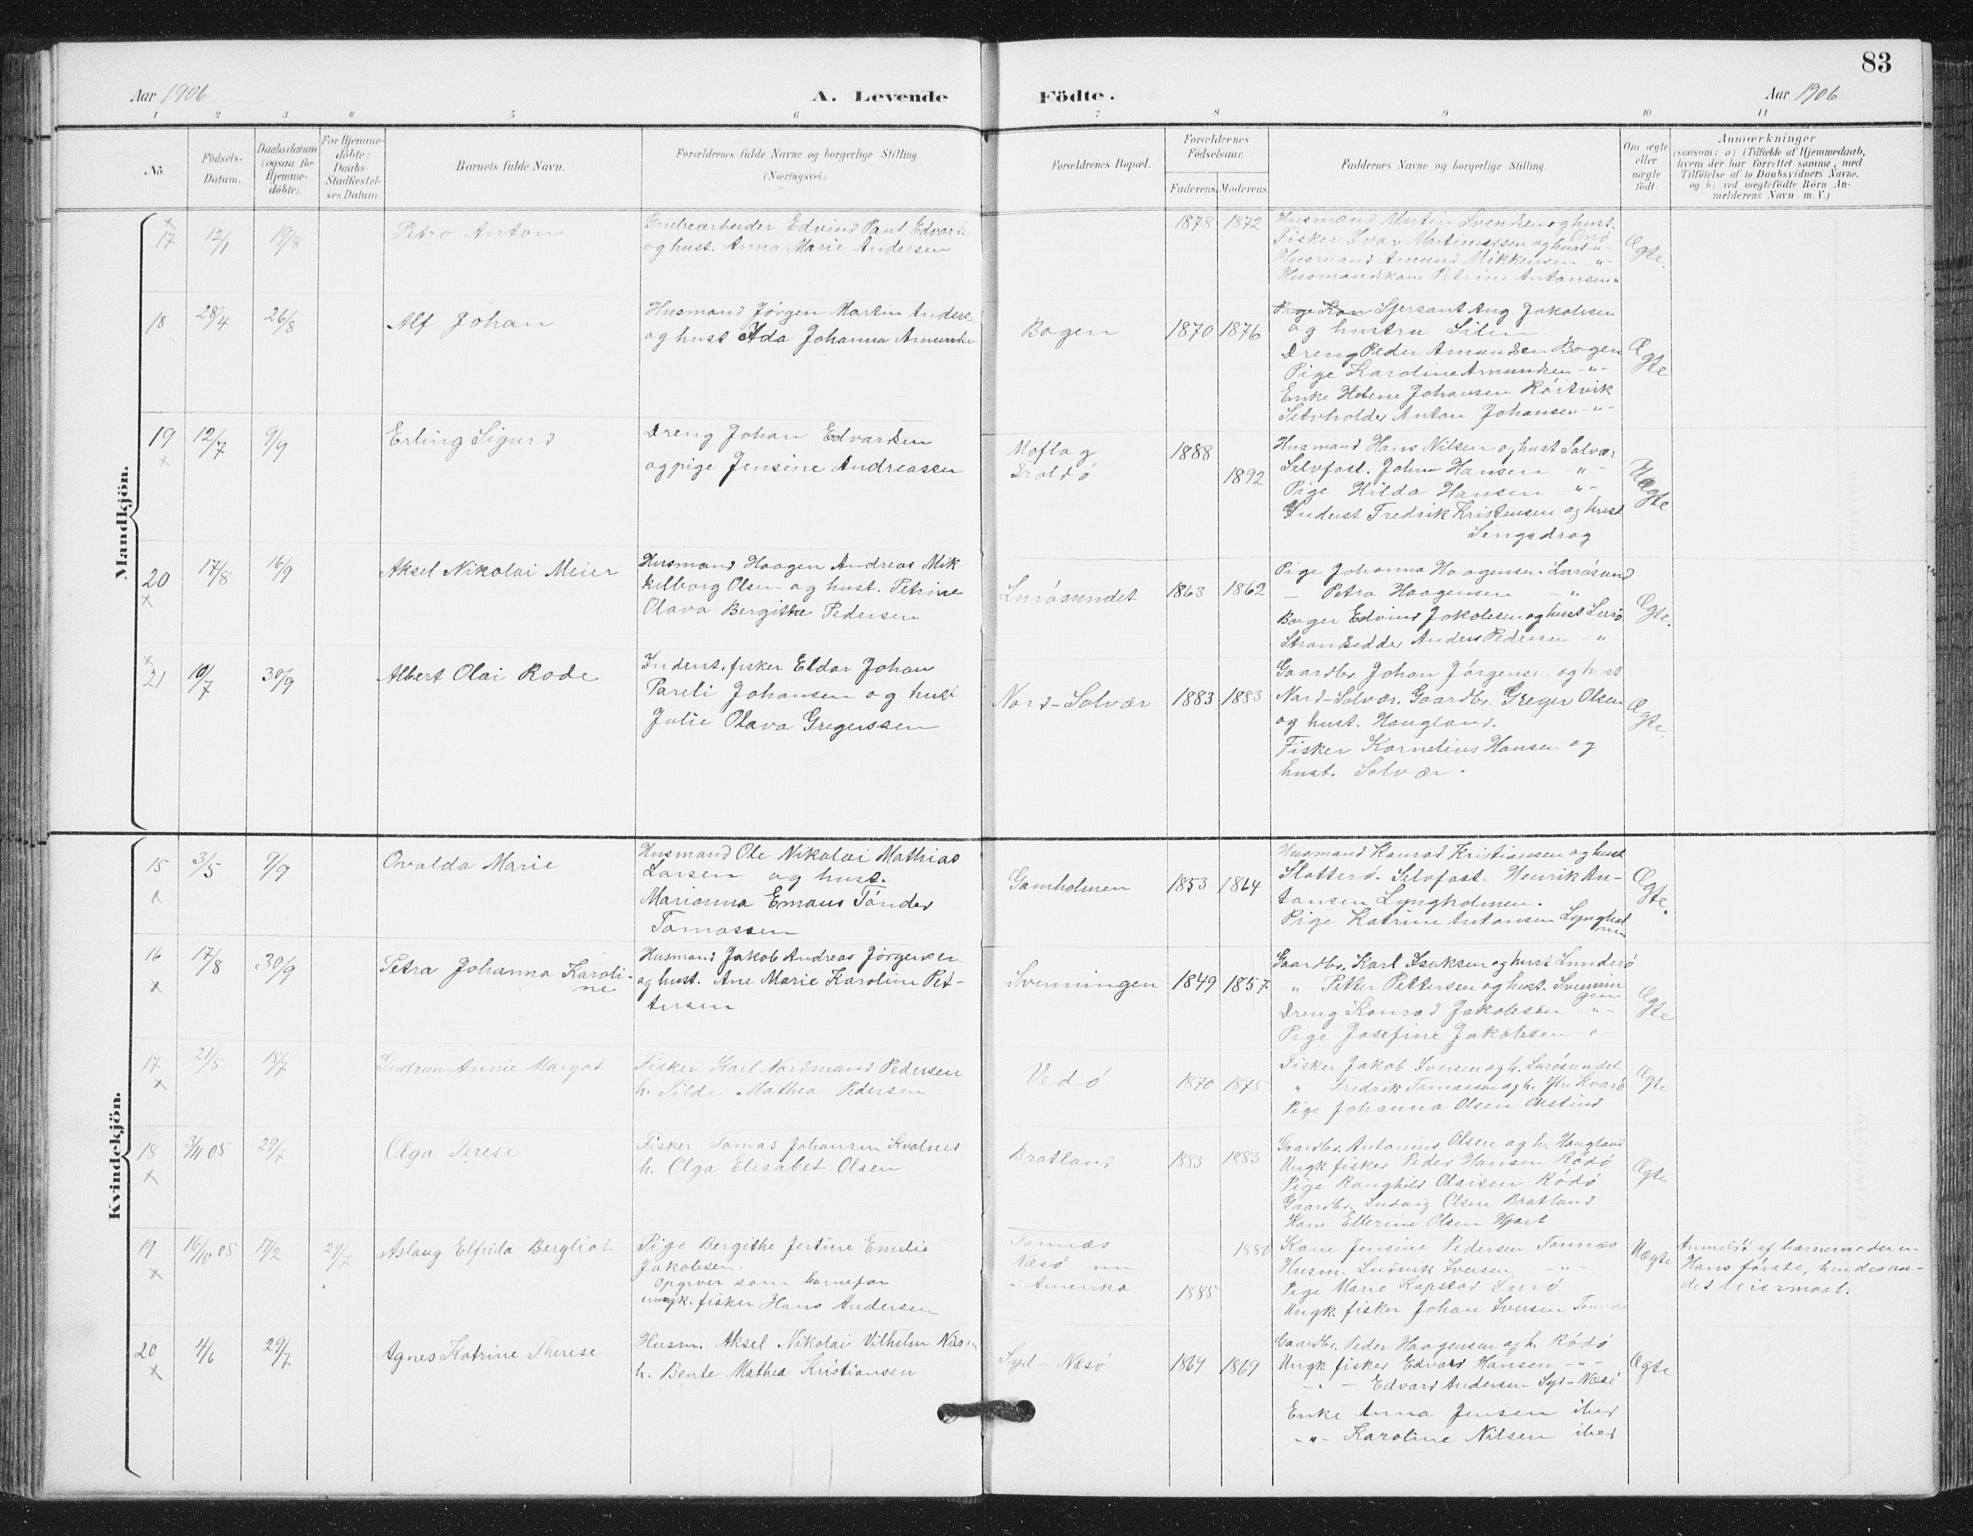 83
Aar 1906
A. Levende
Födte.
Aar 1906
1 2 3 4 5 6 7 8 9 10 11
No.
Födsels-
Datum.
Daabsdatum
(ogsaa for
Hjemme-
döbte).
For Hjemme-
döbte:
Daabs
Stadfæstel-
ses Datum.
Barnets fulde Navn.
Forældrenes fulde Navne og borgerlige Stilling.
(Næringsvei.)
Forældrenes Bopæl.
Forældrenes
Födselsaar.
Faderens. Moderens.
Faddernes Navne og borgerlige Stilling.
Om ægte
eller
uægte
födt.
Anmærkninger
(saasom: a) i Tilfælde af Hjemmedaab,
hvem der har forrettet samme, med
Tilföielse af to Daabsvidners Navne,
og b) ved uegtefödte Börn An-
melderens Navn m. V.)
Mandkjön.
x
17
12/1
19/8
Petro Anton
Grubearbeider Edvind Paul Edvards
og hust. Anna Marie Andersen
1878 1872
Husmand Martin Svendsen og hust.
Fisker Ivar Martinussen og hust.
Husmand Amund Mikkelsen -"-
Husmandskone Petrine Antonsen
Ægte.
18
28/4
26/8
Alf Johan
Husmand Jørgen Martin Anders
og hust Ida Johanna Amunds
Bogen
1870 1876
Sjersant Aug Jakobsen
og hustru Silen
Dreng Peder Amundsen Bogen
Pige Karoline Amundsen -"-
Enke Helene Johansen Röitvik
Selvholder Anton Johansen -"-
Ægte
19
x
12/7
9/9
Erling Sigurd
Dreng Johan Edvardsen
og pige Jensine Andreassen
Moflag
Troldö
1888
1892
Husmand Hans Nilsen og hust Solvær
Selvfost. Johan Hansen "-
Pige Hilda Hansen "-
Inderst Fredrik Kristensen og hust
Selvær
Uægte
20
x
17/8
16/9
Aksel Nikolai Meier
Husmand Haagen Andreas Mik-
kelborg Olsen og hust. Petrine
Olava Bergitte Pedersen
LuröSundet
1863 1862
Pige Johanna Haagensen Lurösund
- Petra Haagensen -"
Borger Edvind Jakobsen og hust Lurö
Strandsidder Anders Pedersen -"
Ægte.
x
21
10/7
30/9
Albert Olai Rode
Inderst, fisker Eldar Johan
Pareli Johansen og hust
Julie Olava Gregerssen
Nord-Solvær
1883 1883
Gaardbr. Johan Jörgensen og hust
Nord-Solvær. Gaardbr. Greger Olsen
og hust. Haugland.
Fisker Kornelius Hansen og
hust. Solvær.
Ægte.
Kvindekjön.
15
x
3/5
9/9
Ovalda Marie
Husmand Ole Nikolai Mathias
Larsen og hust.
Marianna Emaus Tönder
Tomassen
Gamholmen
1853 1864
Husmand Konrad Kristiansen og hust
Slotterö. Selvfost. Henrik An-
tonsen Lyngholmen.
Pige Katrine Antonsen Lynghol
men
Ægte.
16
x
17/8
30/9
Petra Johanna Karoli-
ne
Husmand Jakob Andreas Jørgensen
og hust. Ane Marie Karoline Pet-
tersen
Svenningen
1849 1857
Gaardbr. Karl Isaksen og hust Lunderö
" Petter Pettersen og hust. Svennin
gen
Dreng Konrad Jakobsen -"-
Pige Josefine Jakobsen -"-
Ægte
17
x
21/5
15/7
Gudrun Annie Margot
Fisker Karl Nordmand Pedersen
h. Nilde Mathea Pedersen
Vedö
1870 1875
Fisker Jakob Iversen og h. Lurösundet
" Fredrik Tomassen og h. Ytre Kvarö
Pige Johanna Olsen Okstind
Ægte
18
x
3/11 05
29/7
Olga Terese
Fisker Tomas Johansen Kvalnes
h. Olga Elisabet Olsen
Bratland
1883 1883
Gaardbr. Antonius Olsen og h. Haugland
Ungk fisker Peder Hansen Rödö
Pige Ranghild Olaisen Rödö
Gaardbr. Ludvig Olsen Bratland
Kone Ellerine Olsen Hjart
Ægte
19
x
16/10 05
17/2
29/7
Aslaug Elfrida Bergliot
Pige Bergithe Jertine Emelie
Jakobsen.
Opgiver som barnefar
ungk. fisker Hans Andersen
Tonnæs
Næsö nu
i Amerika
1880
1885
Kone Jensine Pedersen Tonnæs
Husm. Ludvik Iversen -"-
Pige Marie Kapstad Lurö
Ungk. fisker Johan Iversen Tonnæs
Uægte
Anmeldt af barnemoderen
Hans förste, hendes an-
det leiermaal.
20
x
4/6
29/7
Agnes Katrine Therese
Husm. Aksel Nikolai Vilhelm Nilsen
h. Bente Mathea Kristiansen
Syd-Næsö
1864 1869
Gaardbr. Peder Haagensen og h. Rödö
Ungk fisker Edvard Hansen -"-
-"- Edvard Andersen Syd-Næsö
Enke Anna Jensen ibid
-"- Karoline Nilsen ibid
Ægte